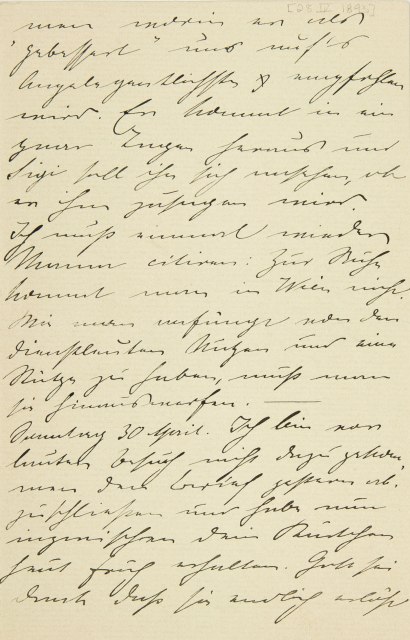 [25 IV 189
man worin er als
"gebessert" und auf's
Angelegentlichste empfohlen
wird. Er kommt in ein
paar Tagen heraus und
soll ihn sich ansehen, ob
er ihm zusagen wird.
Ich muß einmal wieder
Mama citiren: Zur Ruhe
kommt man in Wien nicht.
Wie man anfängt von den
Dienstleuten Nutzen und eine
Stütze zu haben, muß man
sie hinauswerfen.
Sonntag 30 April. Ich bin vor
lauter Besuch nicht dazu gekom
men den Bericht gestern ab
zuschließen und habe nun
inzwischen Dein Kärtchen
heut früh erhalten. Gott sei
Dank daß sie endlich erlöst